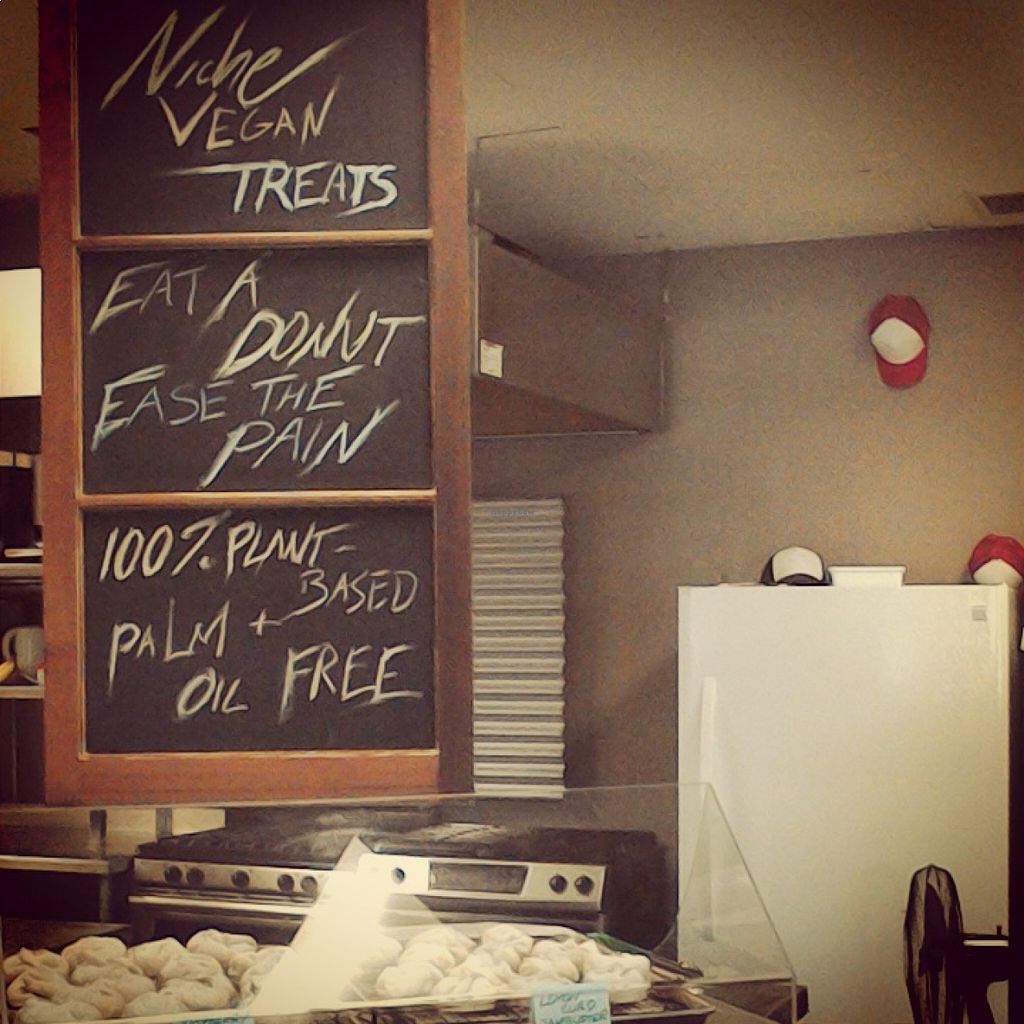 Niche
VEGAN
TREATS
EAT A
DONUT
EASE THE
PAIN
100% PLANT-
BASED
PALM +
OIL FREE
LEMON
CURD
JAMBUSTER